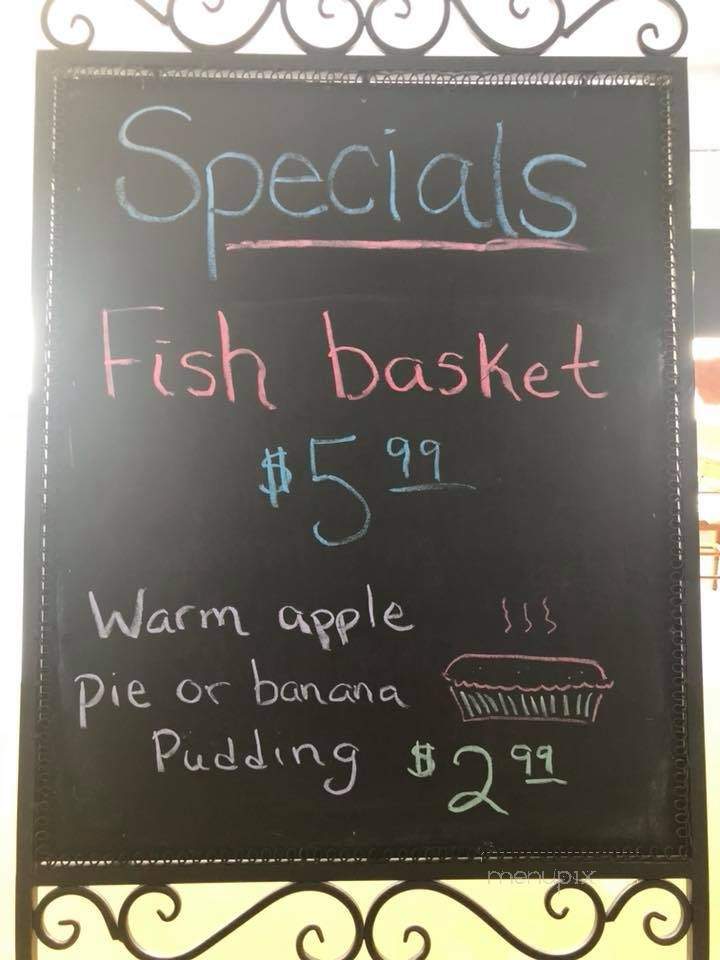 Specials
Fish basket
$5.99
Warm apple
pie or banana
Pudding $2.99
menupix